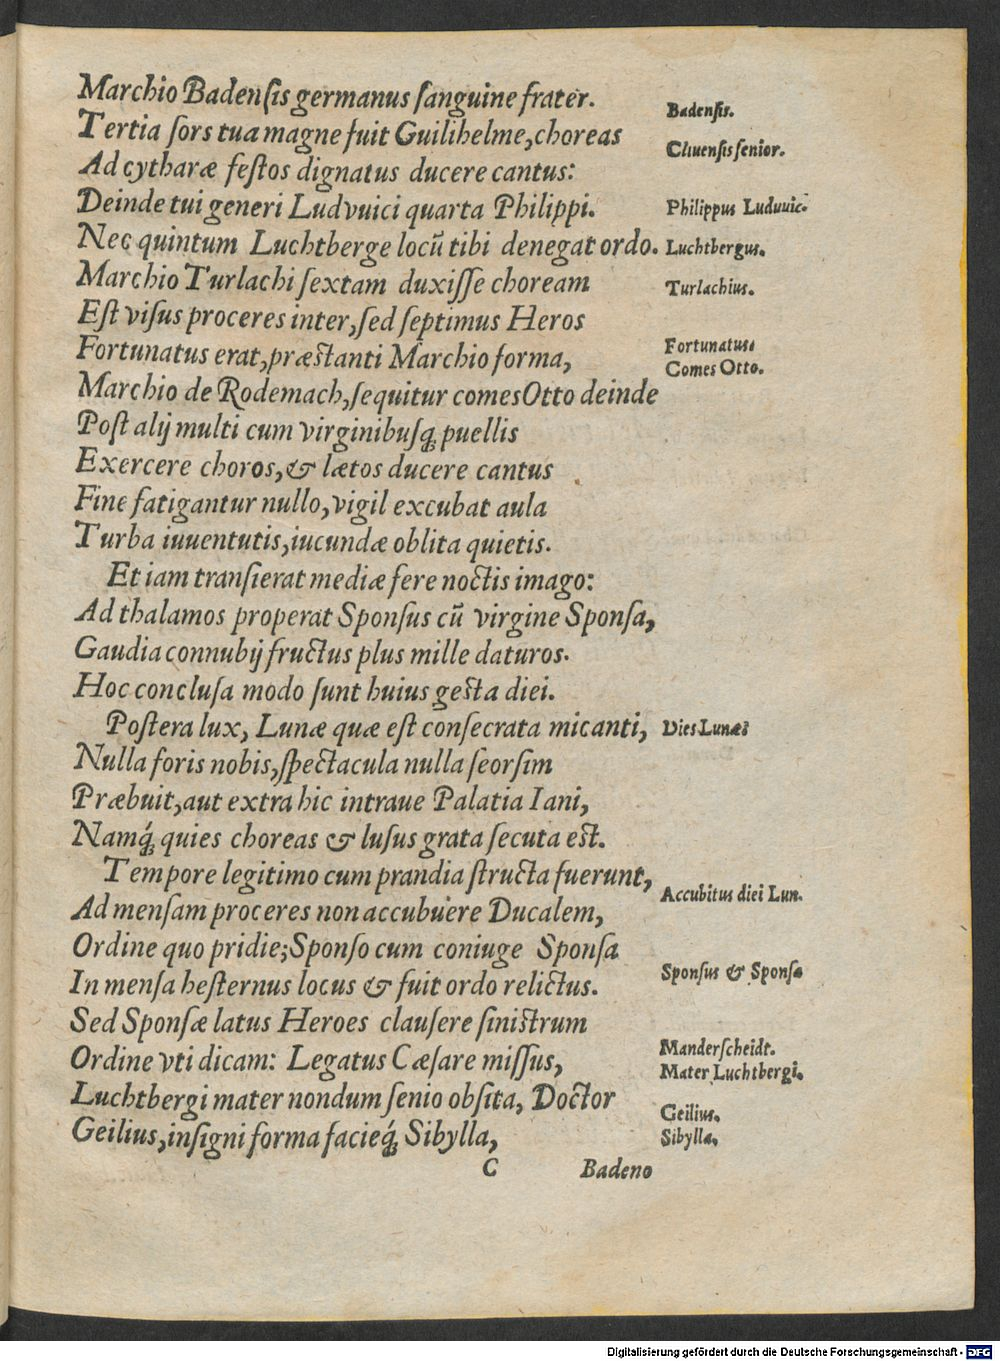 Marchio Badensis germanus sanguine frater.
Badensis.
Tertia sors tua magne fuit Guilihelme, choreas
Cliuensis senior.
Ad cytharæ festos dignatus ducere cantus:
Deinde tui generi Ludvuici quarta Philippi.
Philippus Luduuic.
Nec quintum Luchtberge locũ tibi denegat ordo.
Luchtbergus.
Marchio Turlachi sextam duxisse choream
Turlachius.
Est visus proceres inter, sed septimus Heros
Fortunatus erat, præstanti Marchio forma,
Fortunatus.
Comes Otto.
Marchio de Rodemach, sequitur comes Otto deinde
Post alij multi cum virginibusq́; puellis
Exercere choros, & lætos ducere cantus
Fine fatigantur nullo, vigil excubat aula
Turba iuuentutis, iucundæ oblita quietis.
Et iam transierat mediæ fere noctis imago:
Ad thalamos properat Sponsus cũ virgine Sponsa,
Gaudia connubij fructus plus mille daturos.
Hoc conclusa modo sunt huius gesta diei.
Postera lux, Lunæ quæ est consecrata micanti,
Dies Lunæ
Nulla foris nobis, spectacula nulla seorsim
Præbuit, aut extra hic intraue Palatia Iani,
Namq́; quies choreas & lusus grata secuta est.
Tempore legitimo cum prandia structa fuerunt,
Accubitus diei Lun.
Ad mensam proceres non accubuere Ducalem,
Ordine quo pridie; Sponso cum coniuge Sponsa
Sponsus & Sponsa
In mensa hesternus locus & fuit ordo relictus.
Sed Sponsæ latus Heroes clausere sinistrum
Ordine vti dicam: Legatus Cæsare missus,
Manderscheidt.
Mater Luchtbergi.
Luchtbergi mater nondum senio obsita, Doctor
Geilius.
Geilius, insigni forma facieq́; Sibylla,
Sibylla.
C Badeno
Digitalisierung gefördert durch die Deutsche Forschungsgemeinschaft - DFG